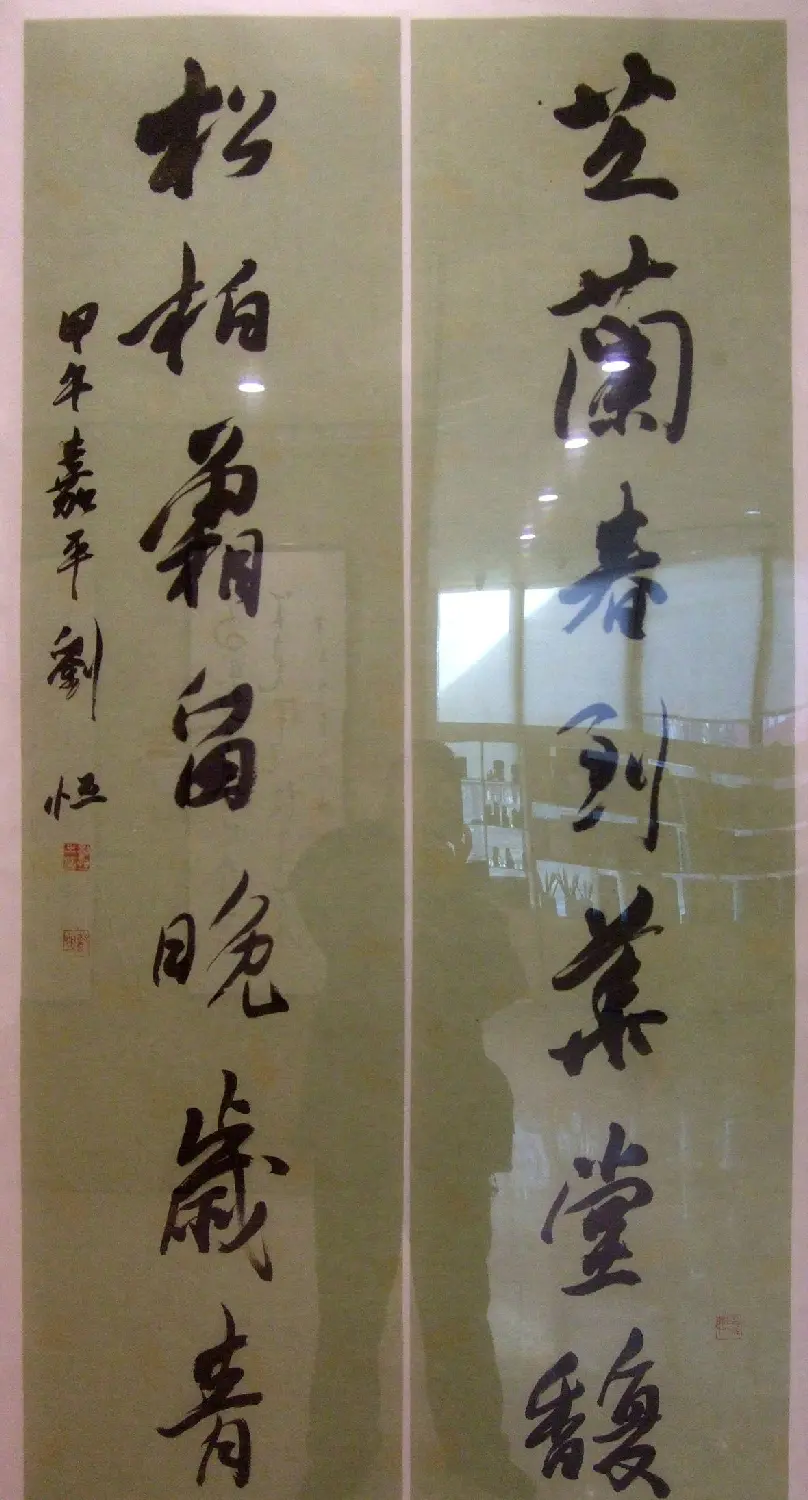 芝蘭春到華堂馥
松柏霜留晚歲青
甲午嘉平劉恒